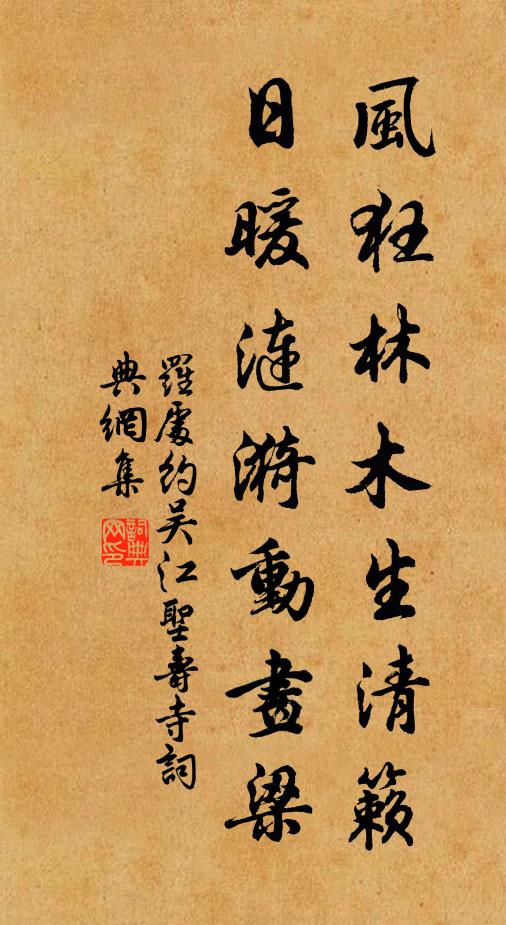 風狂林木生清籟
日暖漣漪動畫梁
羅處約吴江聖壽寺詞
典網集
詞典网印